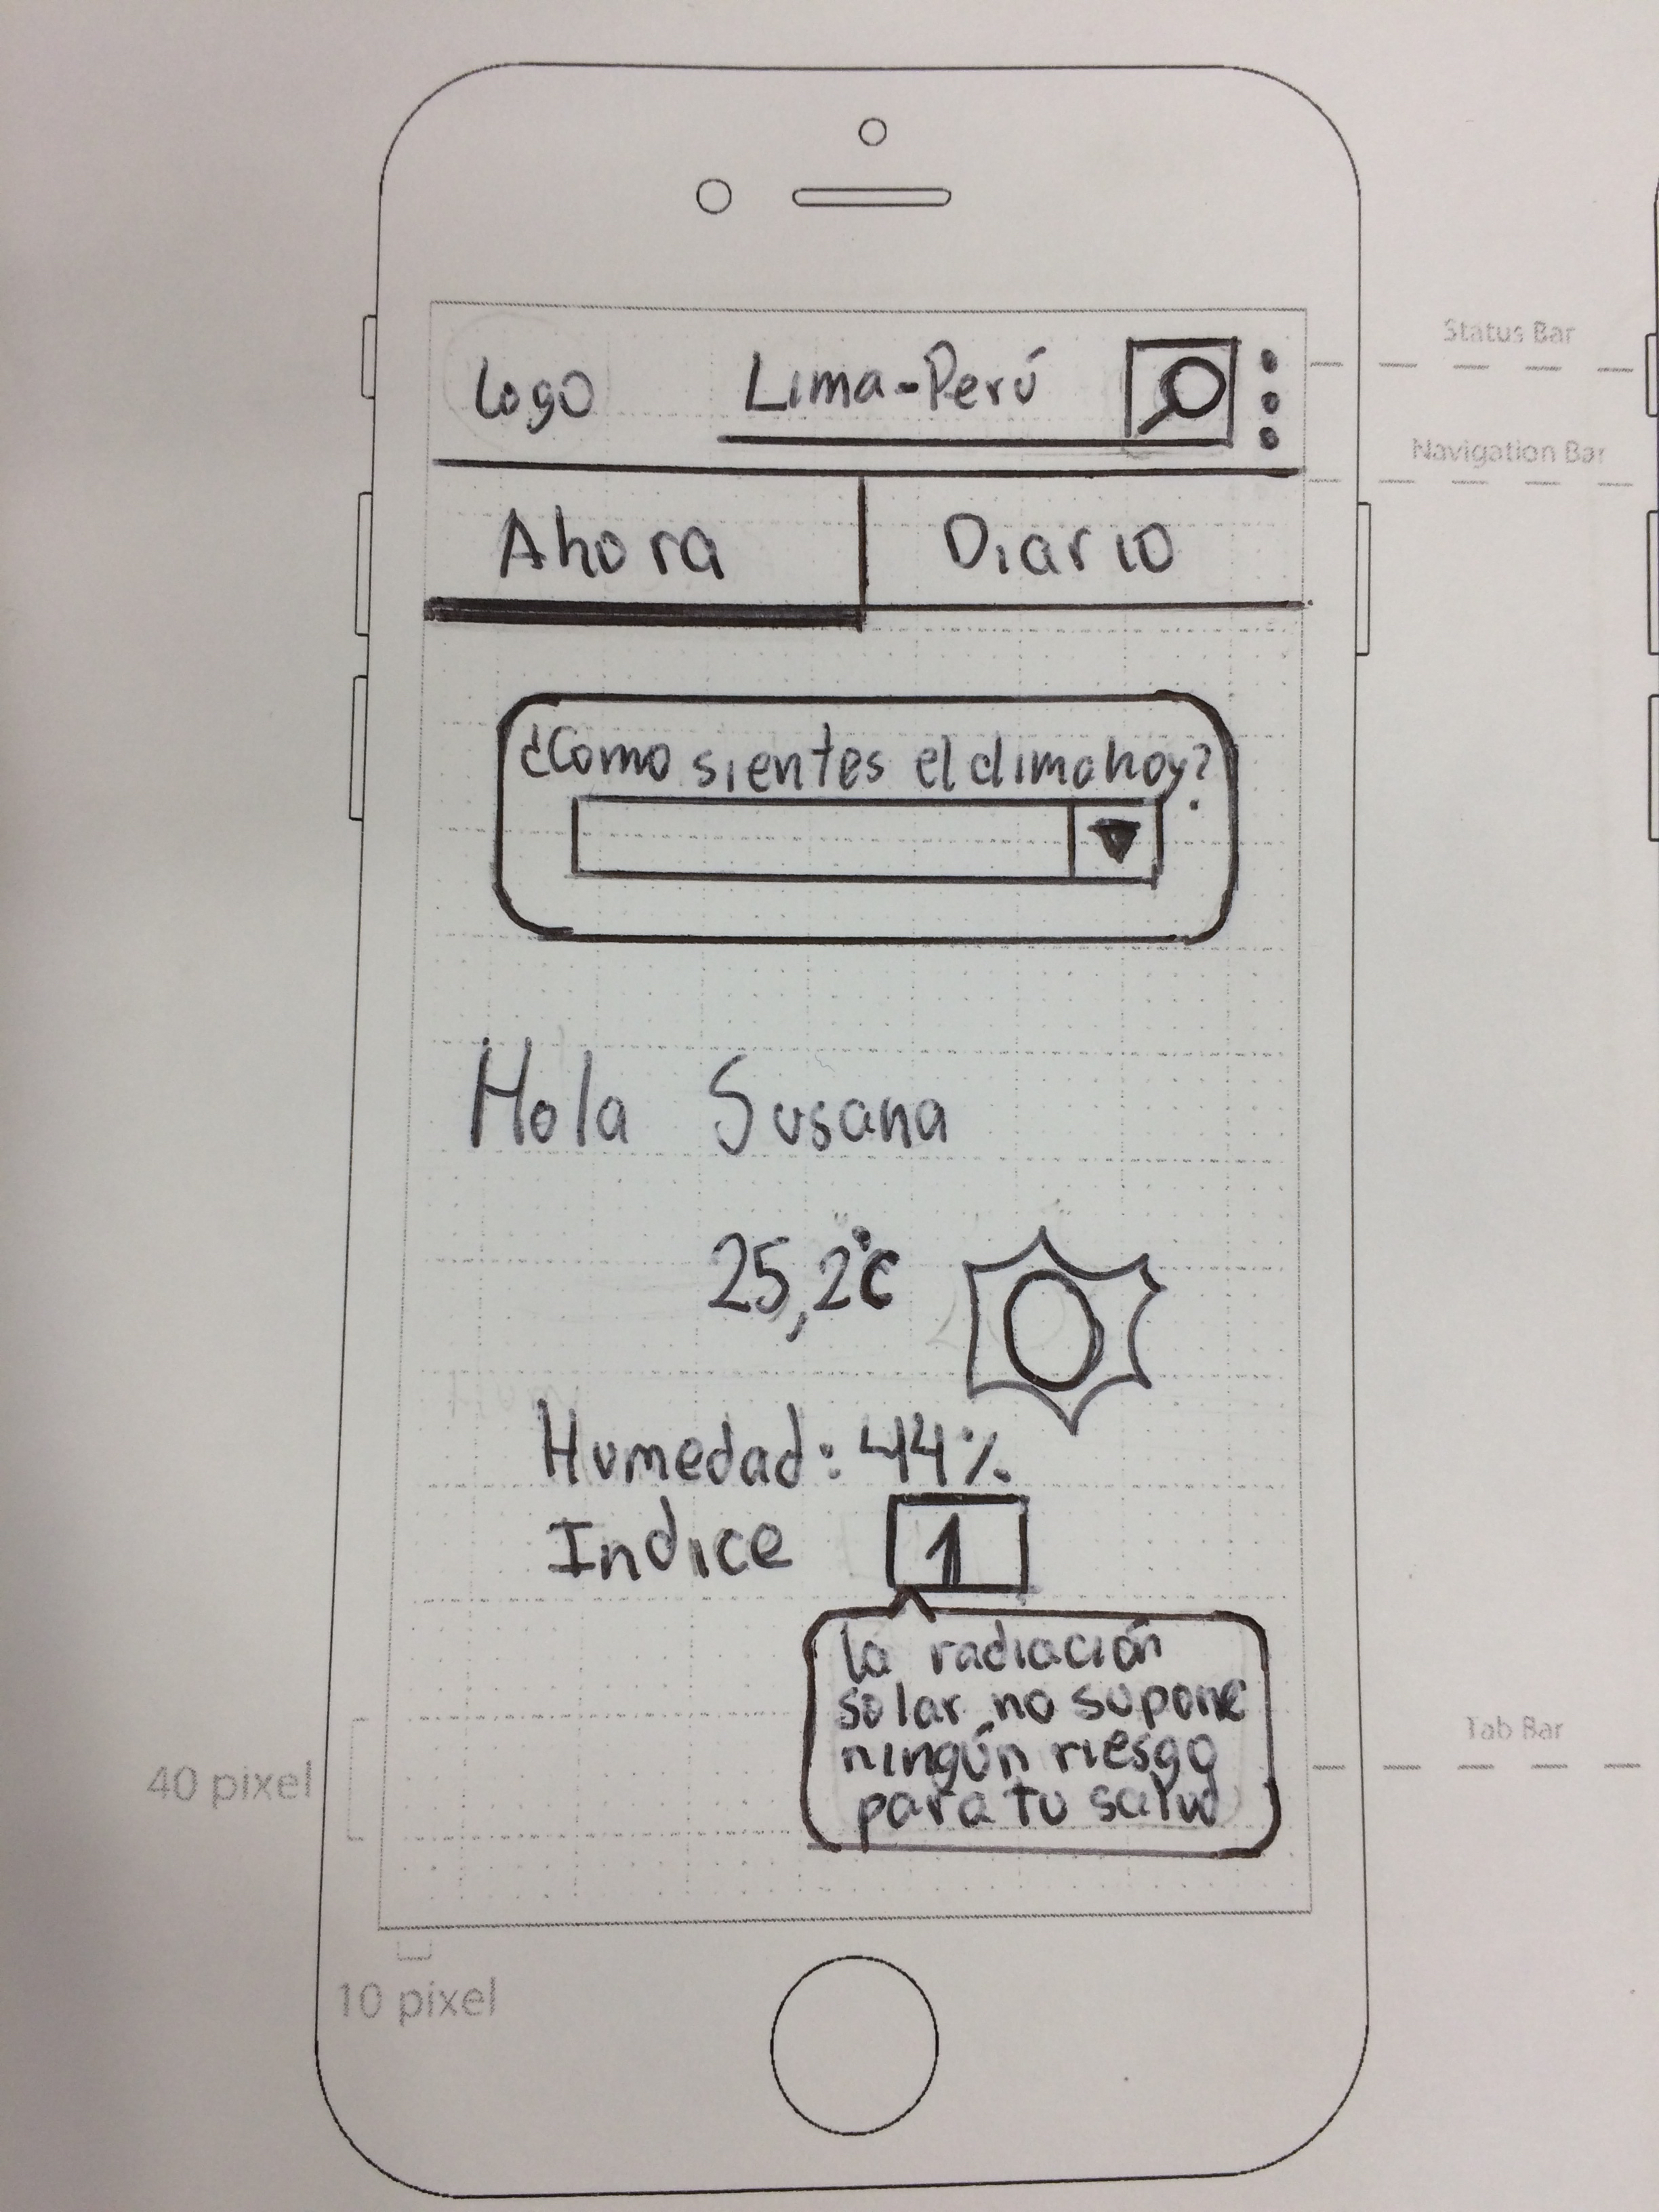 Logo Lima-Perú
Status Bar
Navigation Bar
Ahora Diario
¿Como sientes el clima hoy?
Hola Susana
25,2°C
Humedad: 44%
Indice 1
la radiación
solar no supone
ningún riesgo
para tu salud
Tab Bar
40 pixel
10 pixel